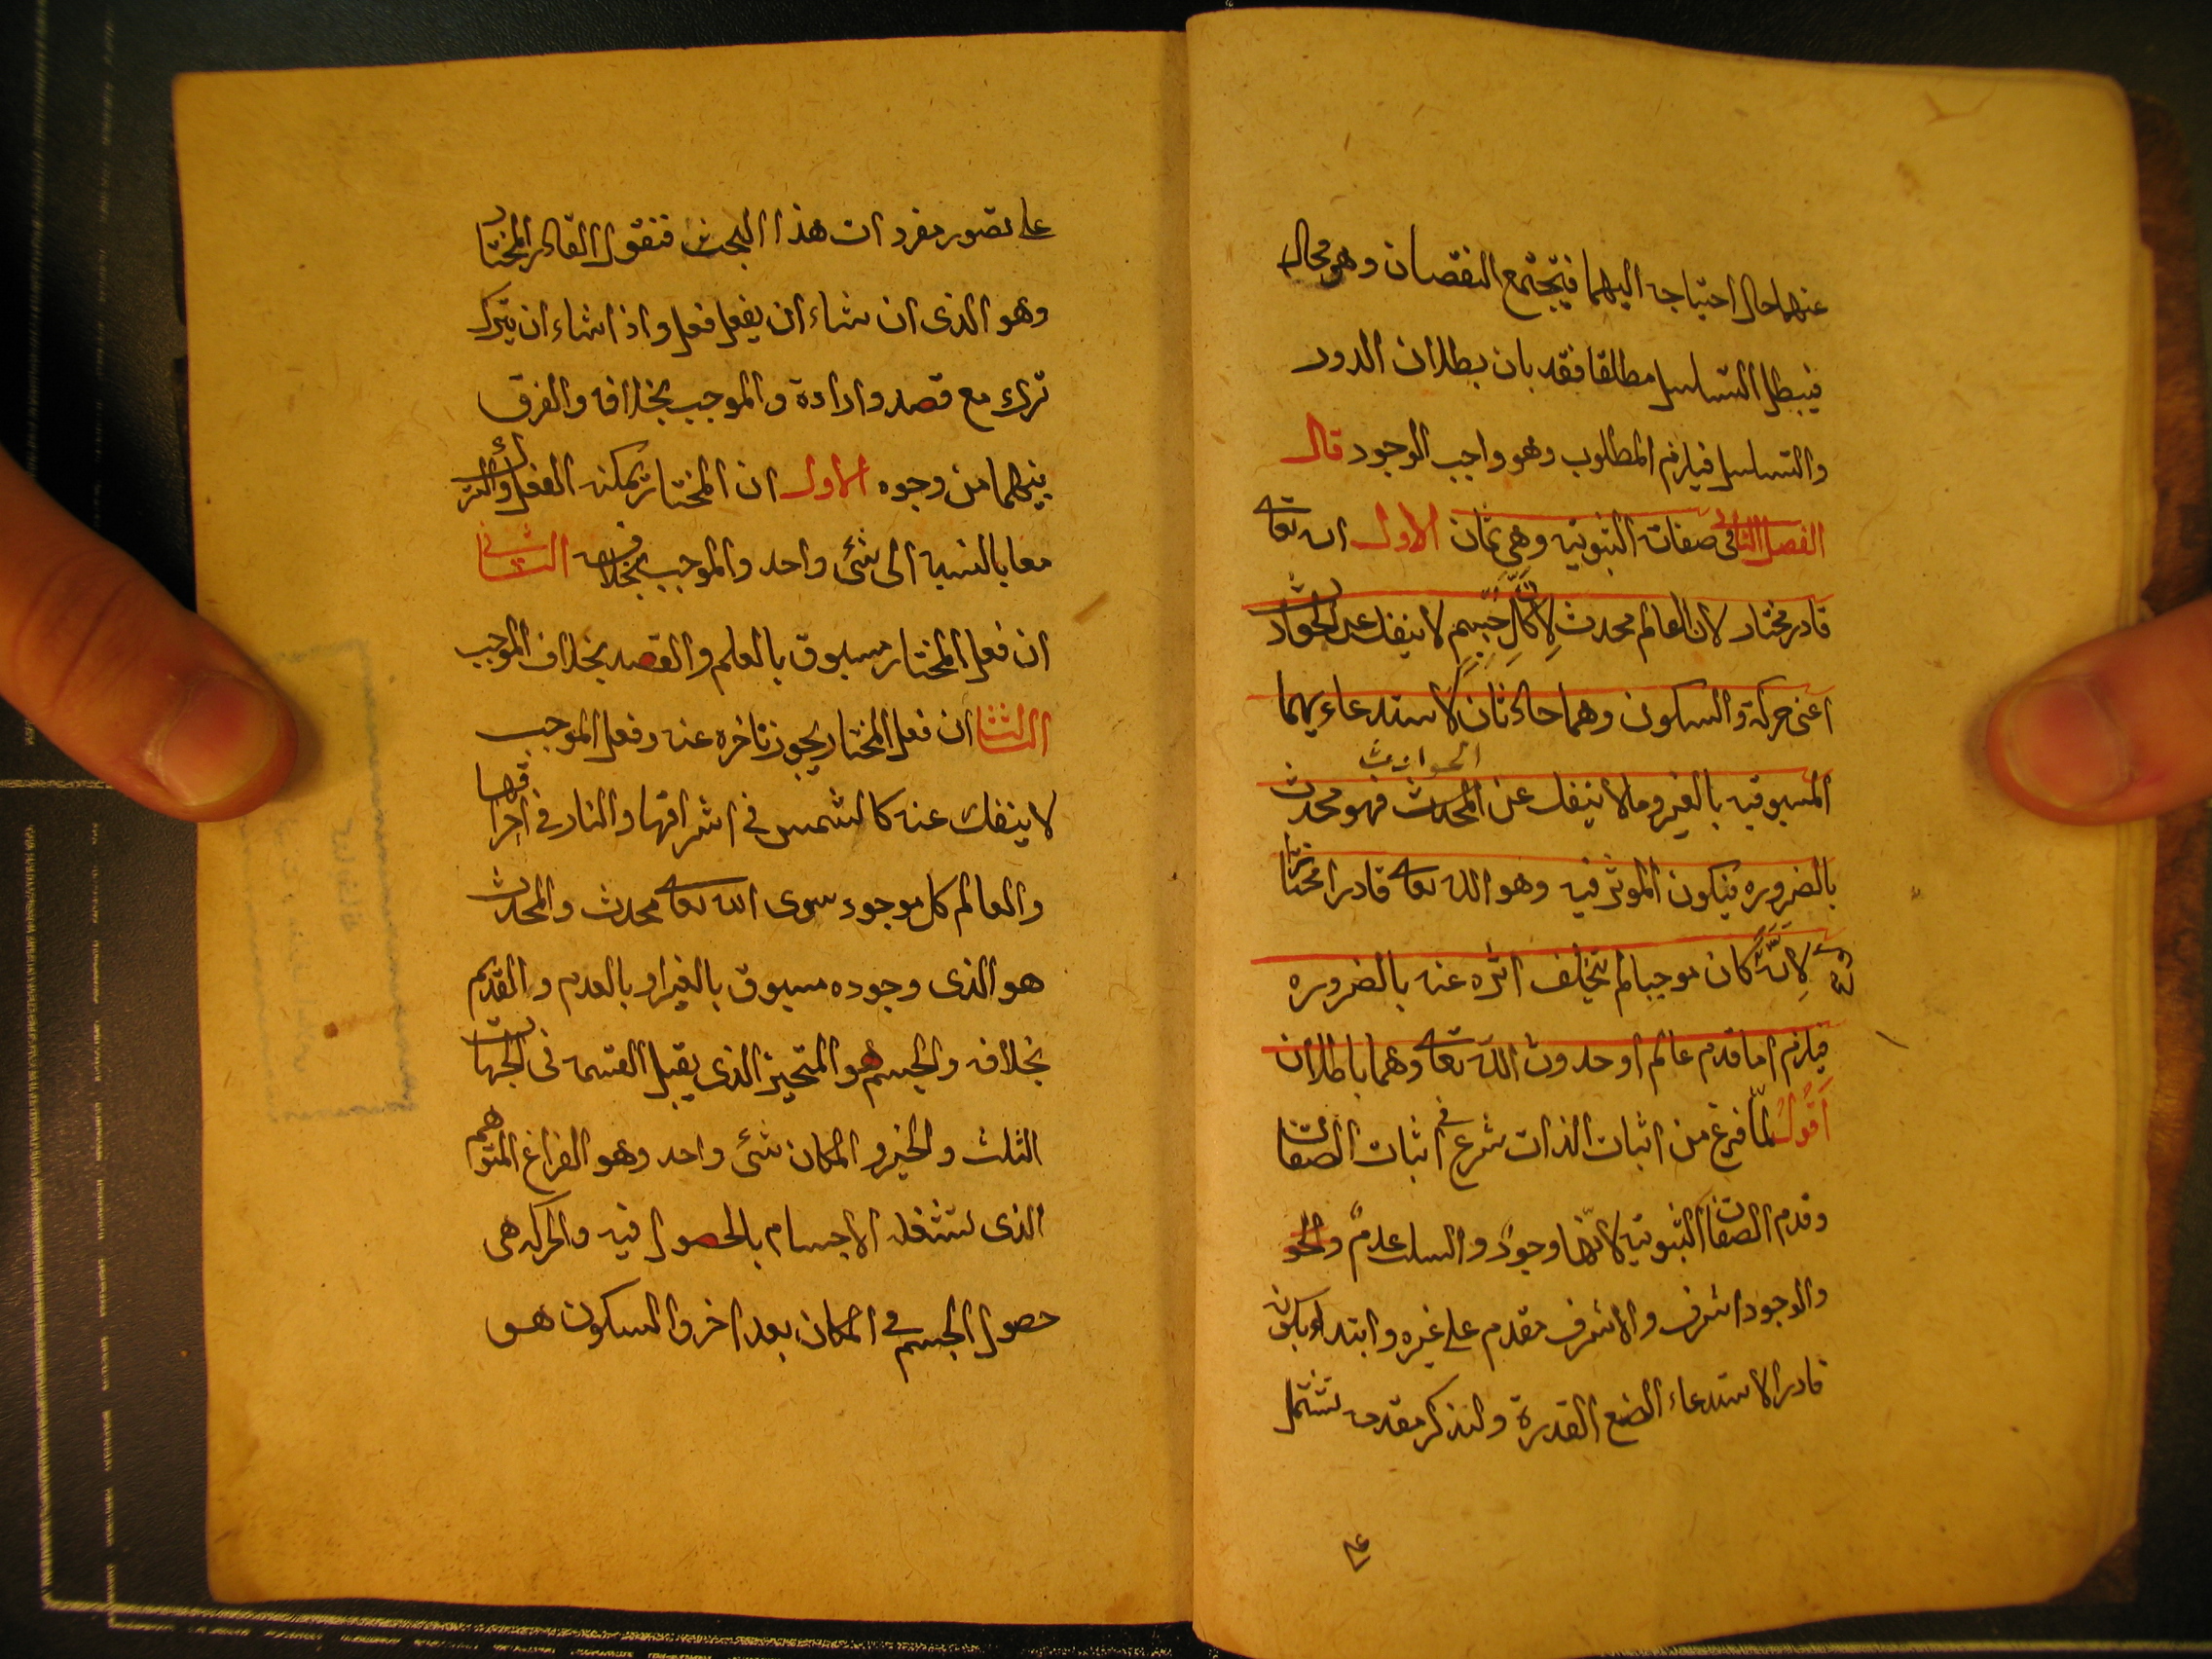 عنهما حال احتياجه اليهما فيجتمع النقصان وهو محال
فيبطل التسلسل مطلقا فقد بان بطلان الدور
والتسلسل فيلزم المطلوب وهو واجب الوجود قال
الفصل الثانى فى صفات الثبوتيه وهى ثمان الاول انه تعالى
قادر مختار لان العالم محدث لِاَنَّ كلّ جسمٍ لا ينفك عن الحوادث
اعنى حركة والسكون وهما حادثان لاستدعاءيهما
الحوادث
المسبوقيه بالغير وما لا ينفك عن المحدث فهو محدث
بالضروره فيكون الموثر فيه وهو الله تعالى قادرا مختارا
لِانّه كان موجبا لم يتخلف اثره عنه بالضروره
فيلزم اما قدم عالم او حدوث الله تعالى وهما باطلان
اَقُولُ لمّا فرغ من اثبات الذات شرع فى اثبات الصفات
وقدم الصفات الثبوتيه لانّها وجودٌ والسلب عدمٌ
والوجود اشرف والاشرف مقدم على غيره وابتداء بكونه
قادرا لاستدعاء الصنع القدرة ولنذكر مقدمه تشتمل
على
على تصور مفردات هذا البحث فنقول القادر المختار
وهو الذى ان شاء ان يفعل فعل واذا شاء ان يترك
ترك مع قصد وارادة والموجب بخلافه والفرق
بينهما من وجوه الاول ان المختار يمكنه الفعل والترك
معا بالنسبه الى شئ واحد والموجب بخلافه الثانى
ان فعل المختار مسبوق بالعلم والقصد بخلاف الموجب
الثالث ان فعل المختار يجوز تاخره عنه وفعل الموجب
لا ينفك عنه كالشمس فى اشراقها والنار فى احراقها
والعالم كل موجود سوى الله تعالى محدث والمحدث
هو الذى وجوده مسبوق بالغير او بالعدم والقديم
بخلافه والجسم هو المتحيز الذى يقبل القسمه فى الجهات
الثلث والحيز والمكان شئ واحد وهو الفراغ المتوهم
الذى تشغله الاجسام بالحصول فيه والحركه هى
حصول الجسم فى المكان بعد اخر والسكون هو